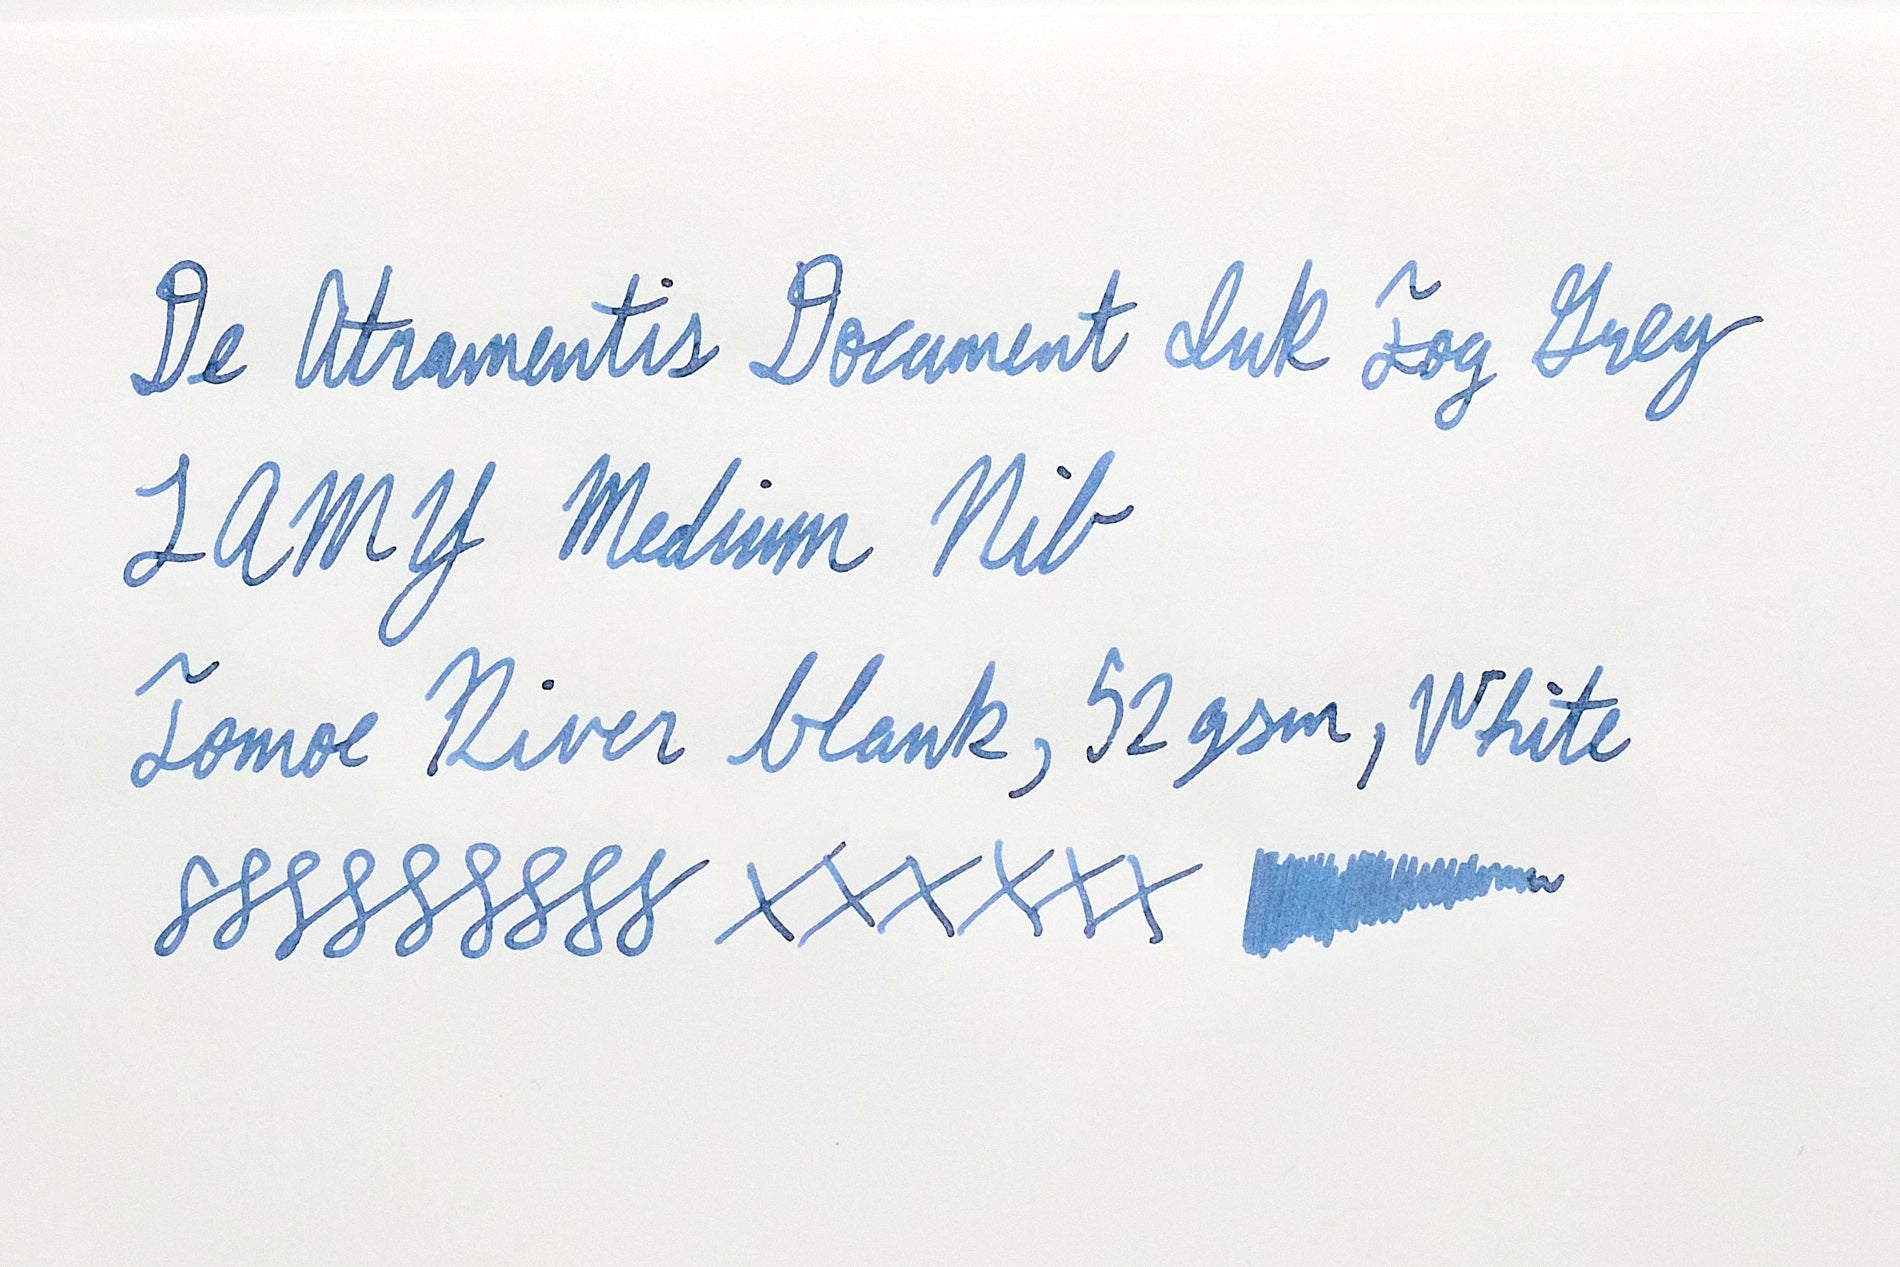 De Atramentis Document Ink Fog Grey
LAMY Medium Nib
Tomoe River blank, 52 gsm, White